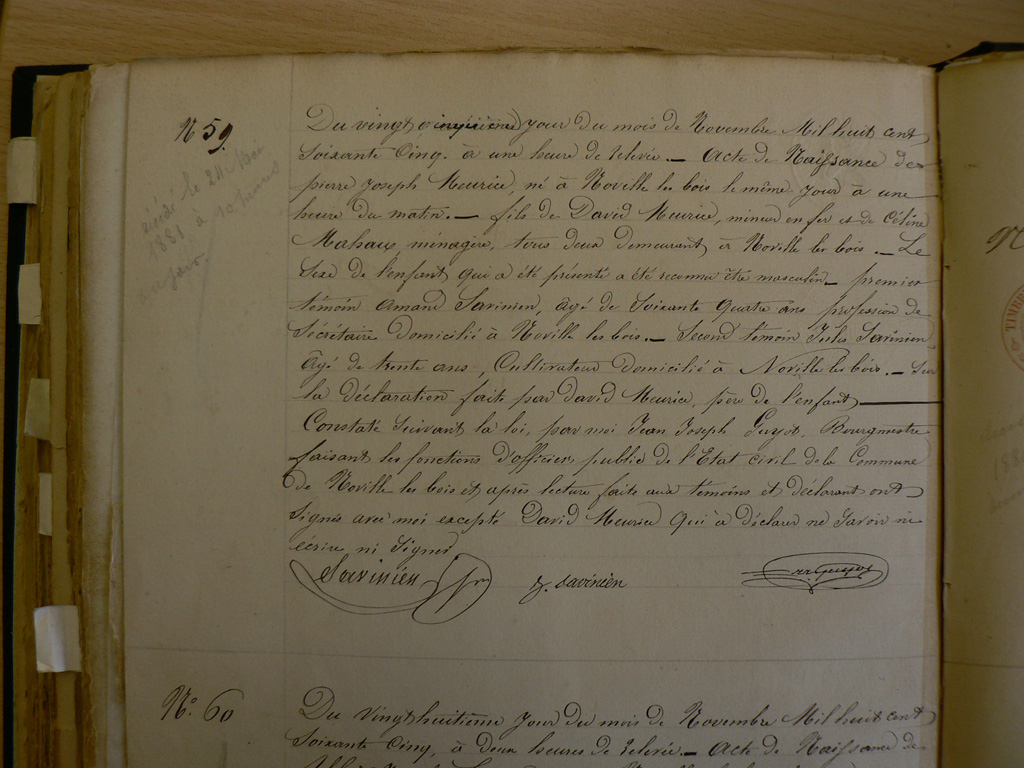 N 59.
Du vingt cinquième jour du mois de Novembre Mil huit cent
soixante Cinq. à une heure de relevée. — Acte de Naissance de
pierre Joseph Meurice, né à Noville les bois le même jour à une
heure du matin. — fils de David Meurice, mineur en fer et de Céline
Mahaux ménagère, tous deux demeurant à Noville les bois. — Le
Sexe de l'enfant qui a été présenté a été reconnu être masculin — premier
témoin Amand Savinien, agé de Soixante quatre ans profession de
Sécrétaire domicilié à Noville les bois. — Second témoin Jules Savinien,
âgé de trente ans, Cultivateur domicilié à Noville les bois. — Sur
la déclaration faite par David Meurice, père de l'enfant
Constaté Suivant la loi, par moi Jean Joseph Guyot, Bourgmestre
faisant les fonctions d'officier public de l'Etat civil de la Commune
de Noville les bois et après lecture faite aux témoins et déclarant ont
Signés avec moi excepté David Meurice qui à déclaré ne Savoir ni
écrire ni Signer
Savinien J. Savinien Guyot
décédé le 24 Mai
1881 à 10 heures
N° 60
Du Vingt huitième jour du mois de Novembre Mil huit cent
Soixante Cinq, à Deux heures de relevée. — Acte de Naissance de